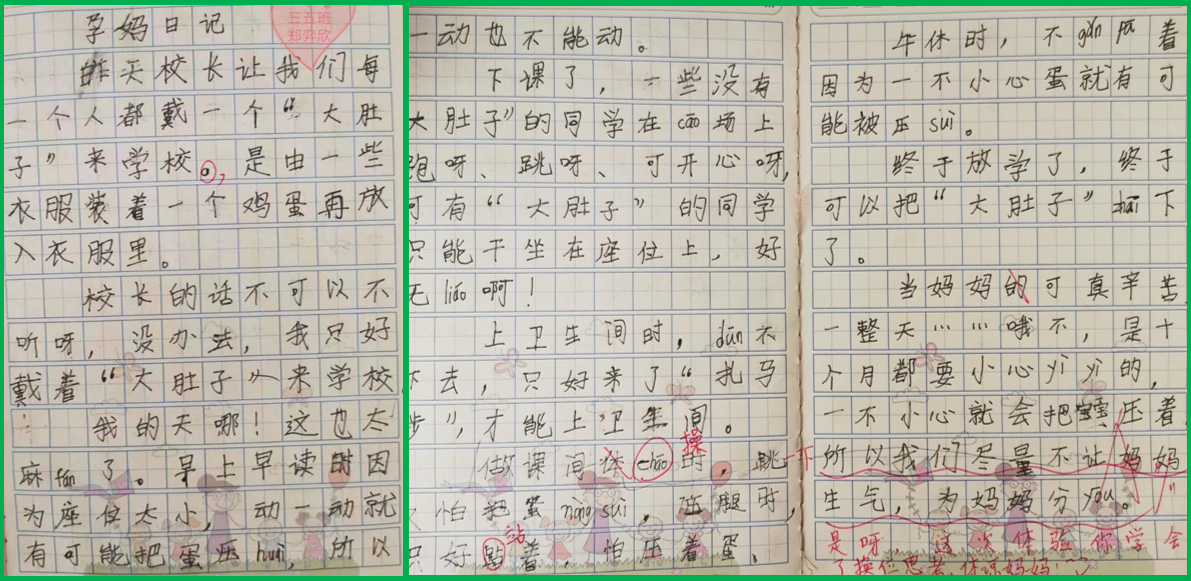 孕妈日记
三五班
郑弈欣
昨天校长让我们每
一个人都戴一个“大肚
子”来学校。,是由一些
衣服装着一个鸡蛋再放
入衣服里。
校长的话不可以不
听呀,没办法,我只好
戴着“大肚子”来学校,
我的天哪!这也太
麻fán了。早上早读时因
为座位太小,动一动就
有可能把蛋压huài,所以
一动也不能动。
下课了,一些没有
大肚子”的同学在cāo场上
跑呀、跳呀、可开心呀,
可有“大肚子”的同学
只能干坐在座位上,好
无liáo啊!
上卫生间时,dūn不
下去,只好来了“扎马
步”,才能上卫生间。
操
做课间体cāo时,跳一下
又怕把蛋nòng suì,压腿时,
站
只好站着,怕压着蛋。
午休时,不gǎn pā着
因为一不小心蛋就有可
能被压suì。
终于放学了,终于
可以把“大肚子”huàn下
了。
当妈妈的可真辛苦
一整天……哦不,是十
个月都要小心yì yì的,
一不小心就会把宝宝压着
所以我们尽量不让妈妈
生气,为妈妈分yōu。
是呀,这次体验你学会
了换位思考,体谅妈妈!